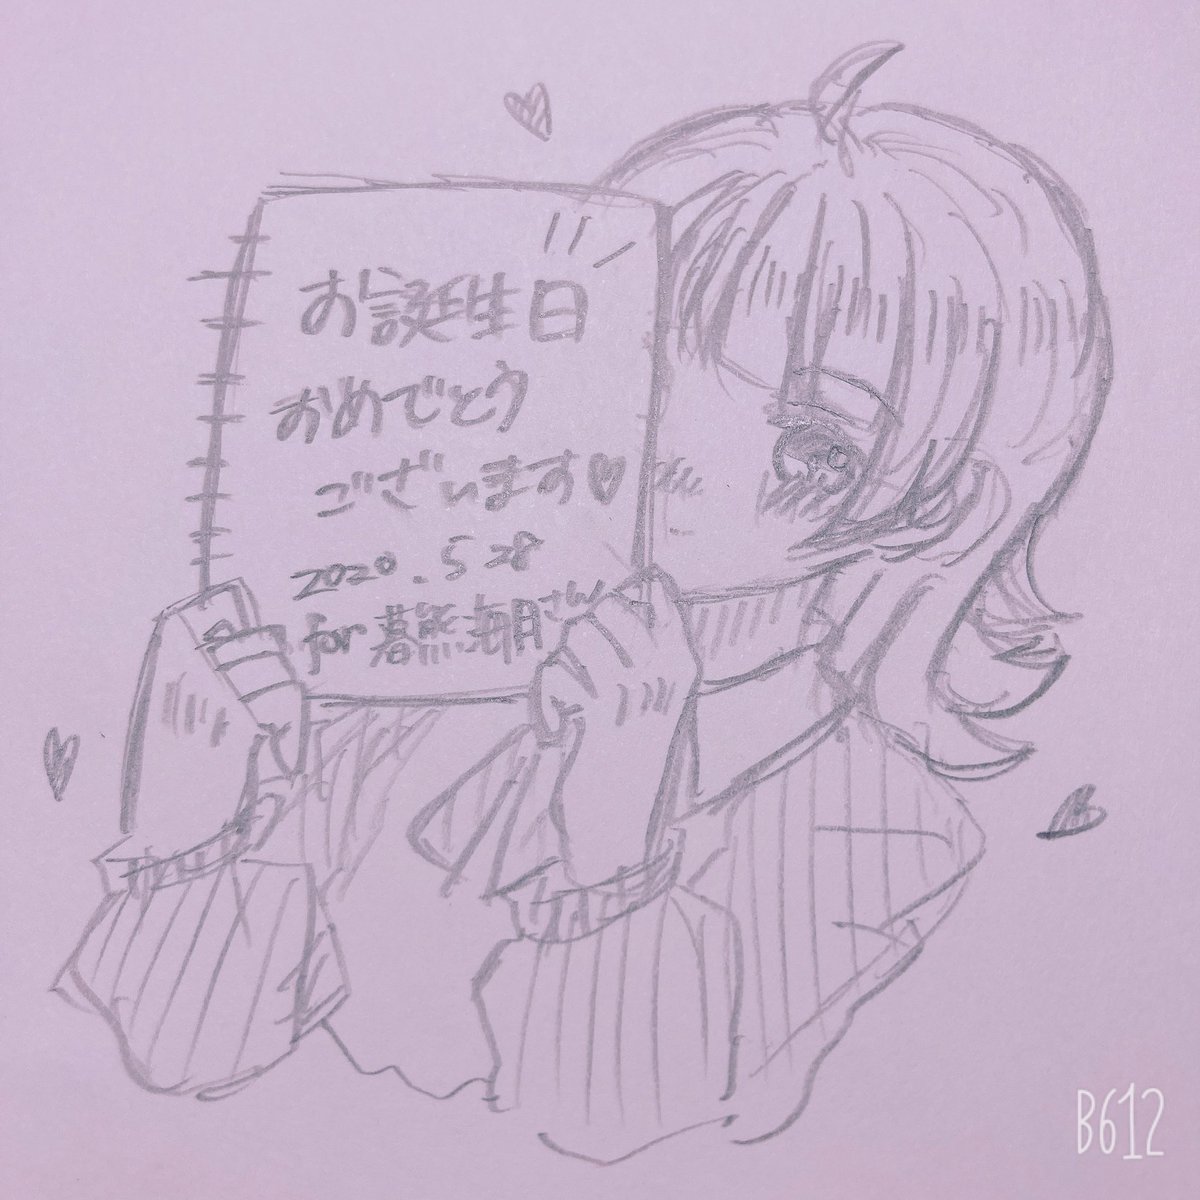 お誕生日
おめでとう
ございます♥
2020.5 28
for 暮熊海月さんへ
B612